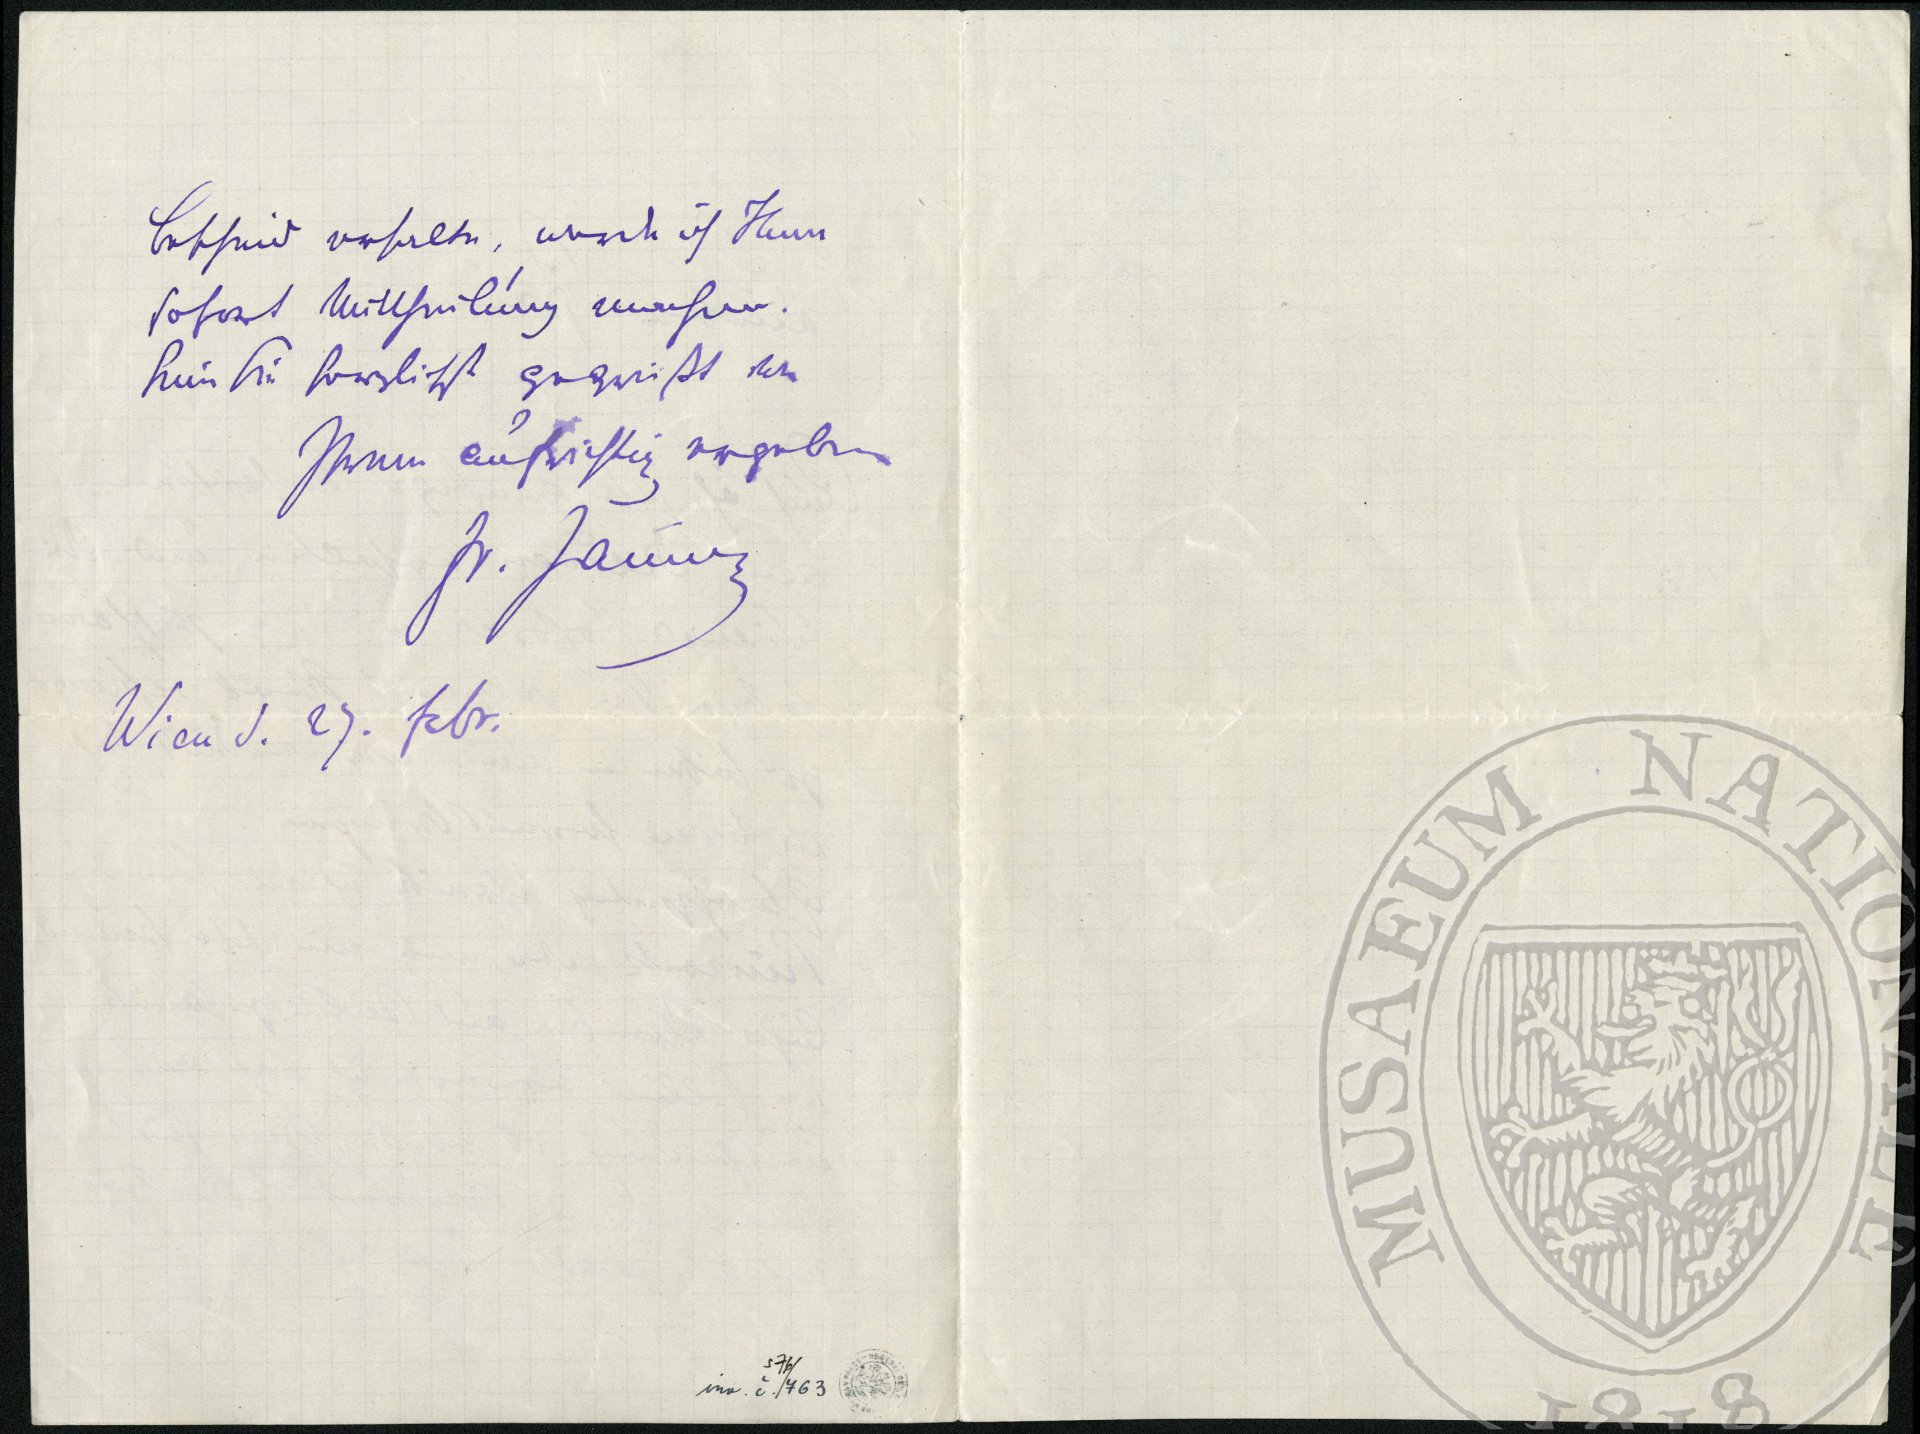 Bescheid erhalte, werde ich Ihnen
sofort Mittheilung machen.
Seien Sie herzlichst gegrüßt von
Ihrem aufrichtig ergebenen
Fr. Jauner
Wien d. 27. febr.
576/
inv. č. /763
MUSAEUM NATIONALE
1818